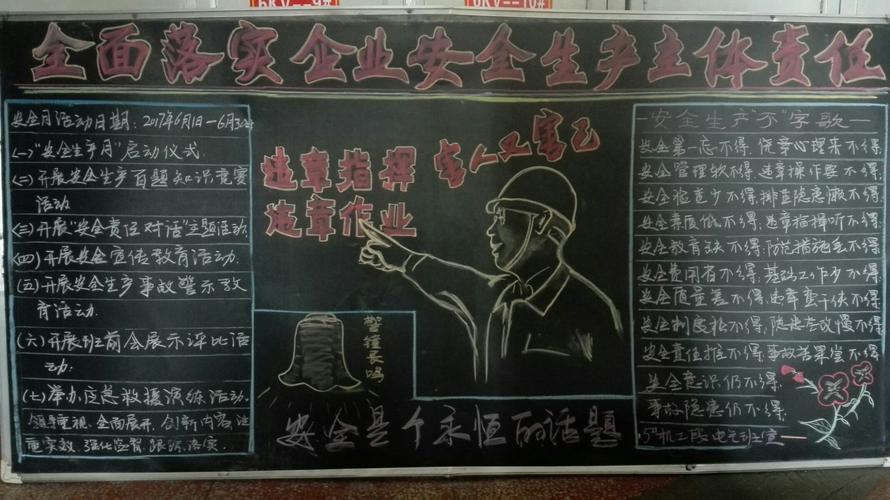 6KV--9#
6KV--10#
全面落实企业安全生产主体责任
安全月活动日期：2017年6月1日—6月30日
(一)“安全生产月”启动仪式.
(二)开展安全生产百题知识竞赛
活动.
(三)开展“安全责任对话”主题活动.
(四)开展安全宣传教育活动.
(五)开展安全生产事故警示教
育活动.
(六)开展班前会展示评比活
动.
(七)举办应急救援演练活动.
领导重视、全面展开、创新内容、注
重实效、强化监督、跟踪落实.
违章指挥 害人又害己
违章作业
警钟长鸣
安全是个永恒的话题
—安全生产“不”字歌—
安全第一忘不得,侥幸心理来不得.
安全管理软不得,违章操作要不得.
安全检查少不得,排查隐患漏不得.
安全素质低不得,违章指挥听不得.
安全教育缺不得,防范措施无不得.
安全费用省不得,基础工作少不得.
安全质量差不得,违章蛮干使不得.
安全制度松不得,隐患整改慢不得.
安全责任推不得,事故苦果尝不得.
安全意识仍不得,
事故隐患仍不得.
5#机工段电气